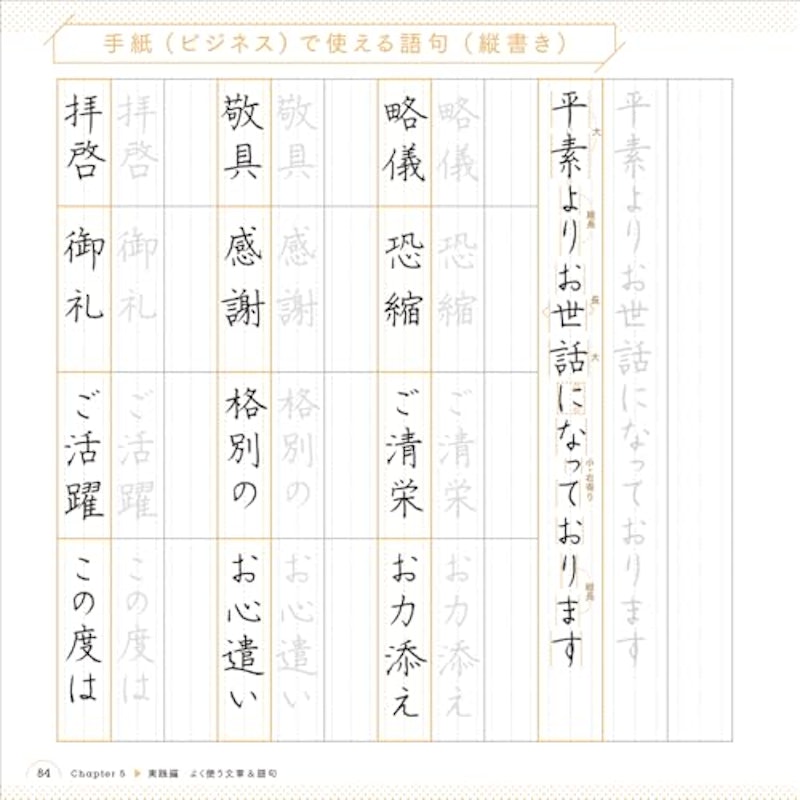 手紙（ビジネス）で使える語句（縦書き）
平素よりお世話になっております
平素よりお世話になっております
大
縦長
長
大
小・右寄り
縦長
略儀
恐縮
ご清栄
お力添え
略儀
恐縮
ご清栄
お力添え
敬具
感謝
格別の
お心遣い
敬具
感謝
格別の
お心遣い
拝啓
御礼
ご活躍
この度は
拝啓
御礼
ご活躍
この度は
84 Chapter 5 ▶ 実践編 よく使う文章＆語句